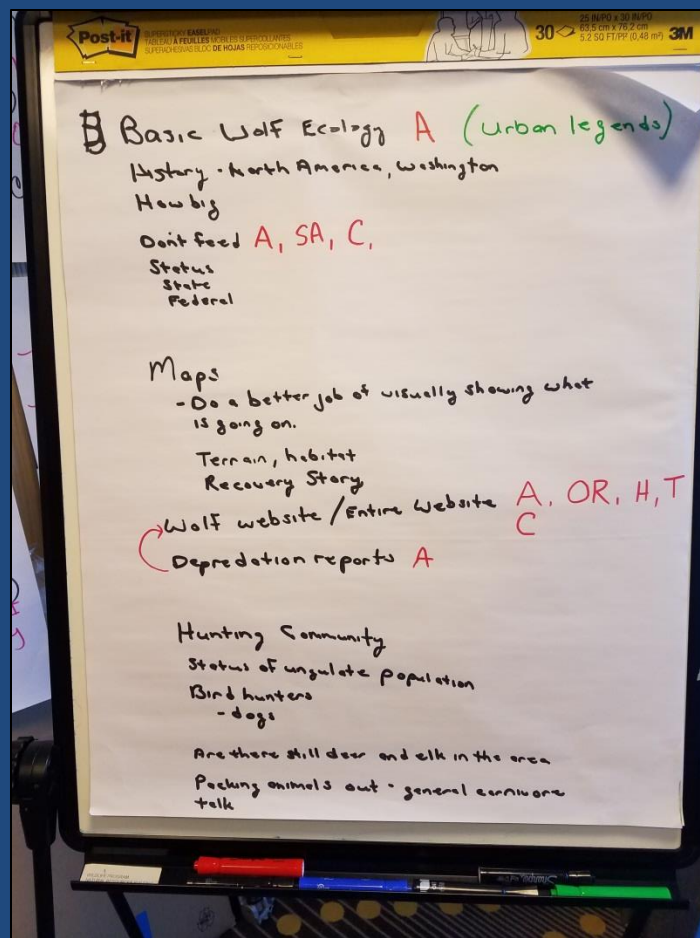 Post-it
SUPERSTICKY EASELPAD
TABLEAU À FEUILLES MOBILES SUPERCOLLANTES
SUPERADHESIVAS BLOC DE HOJAS REPOSICIONABLES
30
25 IN/PO x 30 IN/PO
63,5 cm x 76,2 cm
5.2 SQ FT/PI² (0,48 m²)
3M
B Basic Wolf Ecology A (Urban legends)
History · North America, Washington
How big
Don't feed A, SA, C,
Status
State
Federal
Maps
- Do a better job of visually showing what
is going on.
Terrain, habitat
Recovery Story
Wolf website / Entire website A, OR, H, T
C
Depredation reports A
Hunting Community
Status of ungulate population
Bird hunters
- dogs
Are there still deer and elk in the area
Packing animals out - general carnivore
talk
Sharpie